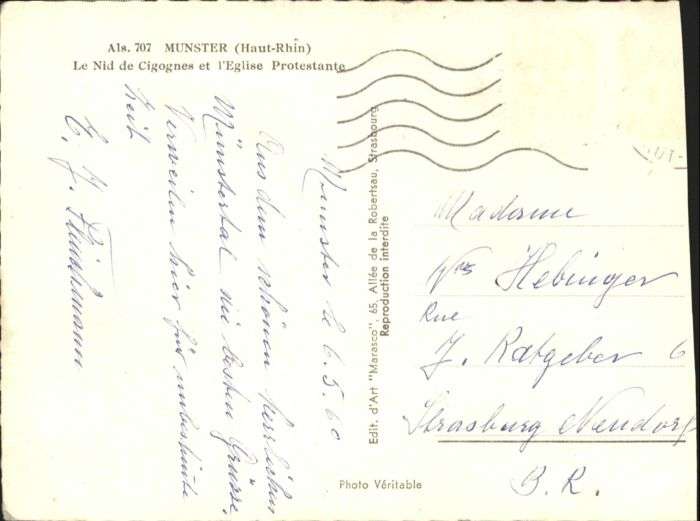 Als. 707 MUNSTER (Haut-Rhin)
Le Nid de Cigognes et l'Eglise Protestante
Munster le 6.5.60
Aus dem schönen herrlichen
Münstertal die besten Grüsse.
Verweilen hier für unbestimmte
Zeit
Edit. d'Art "Marasco", 65, Allée de la Robertsau, Strasbourg
Reproduction interdite
Madame
Hebinger
Rue
J. Ratgeber 6
Strasburg Neudorf
B. R.
Photo Véritable